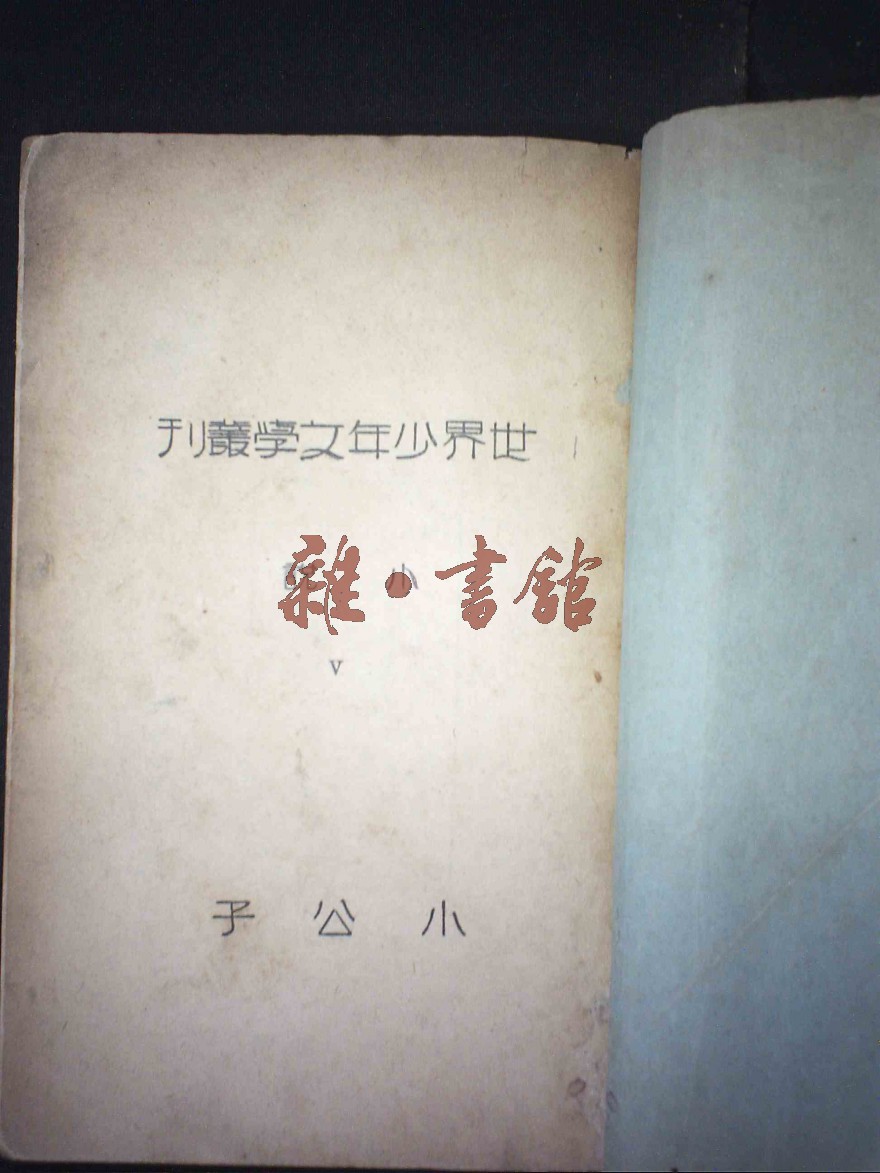 世界少年文學叢刊
雜·書館
V
小公子